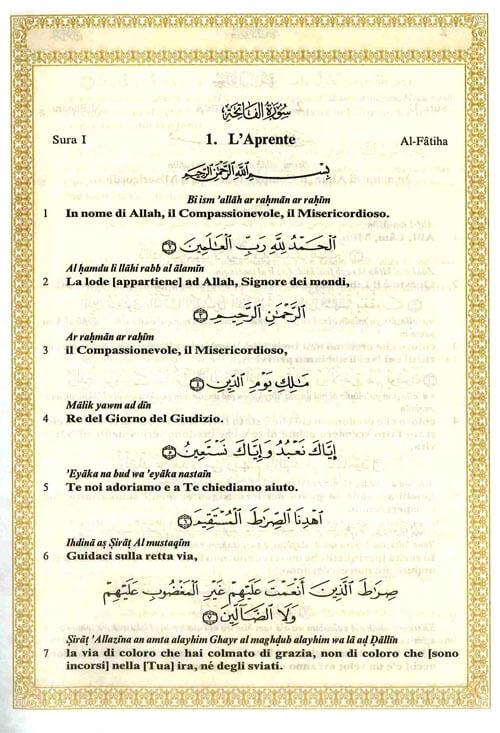 سُورَةُ الفَاتِحَة
Sura I 1. L'Aprente Al-Fâtiha
بِسْمِ اللَّهِ الرَّحْمَٰنِ الرَّحِيمِ
Bi ism 'allāh ar raḥmān ar raḥīm
1 In nome di Allah, il Compassionevole, il Misericordioso.
الْحَمْدُ لِلَّهِ رَبِّ الْعَالَمِينَ ۝٢
Al ḥamdu li llāhi rabb al ālamīn
2 La lode [appartiene] ad Allah, Signore dei mondi,
الرَّحْمَٰنِ الرَّحِيمِ ۝٣
Ar raḥmān ar raḥīm
3 il Compassionevole, il Misericordioso,
مَالِكِ يَوْمِ الدِّينِ ۝٤
Mālik yawm ad dīn
4 Re del Giorno del Giudizio.
إِيَّاكَ نَعْبُدُ وَإِيَّاكَ نَسْتَعِينُ ۝٥
'Eyāka na bud wa 'eyāka nastaīn
5 Te noi adoriamo e a Te chiediamo aiuto.
اهْدِنَا الصِّرَاطَ الْمُسْتَقِيمَ ۝٦
Ihdinā aṣ Ṣirāṭ Al mustaqīm
6 Guidaci sulla retta via,
صِرَاطَ الَّذِينَ أَنْعَمْتَ عَلَيْهِمْ غَيْرِ الْمَغْضُوبِ عَلَيْهِمْ
وَلَا الضَّالِّينَ ۝٧
Ṣirāṭ 'Allazīna an amta alayhim Ghayr al maghḍub alayhim wa lā aḍ Ḍāllīn
7 la via di coloro che hai colmato di grazia, non di coloro che [sono
incorsi] nella [Tua] ira, né degli sviati.